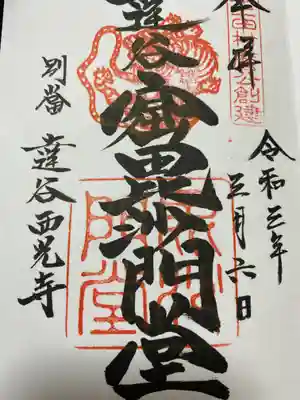 奉拝
令和三年
三月六日
達谷窟毘沙門堂
別當
達谷西光寺